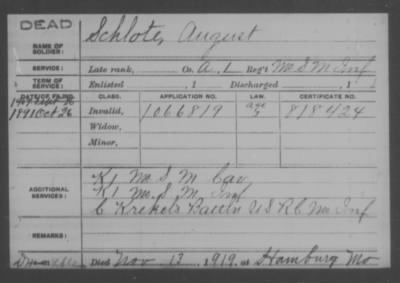 DEAD
NAME OF SOLDIER: Schlote, August
SERVICE: Late rank, Co. A, 1 Reg't Mo S M Inf
TERM OF SERVICE: Enlisted , 1 Discharged , 1
DATE OF FILING. CLASS. APPLICATION NO. LAW. CERTIFICATE NO.
1891 Oct 26 Invalid, 1066819 818424
Widow,
Minor,
K 1 Mo. S. M. Cav,
ADDITIONAL SERVICES: K 1 Mo. S. M. Inf
C Krekels Battln U S R C Mo Inf
REMARKS:
Died Nov 13, 1919, at Hamburg Mo